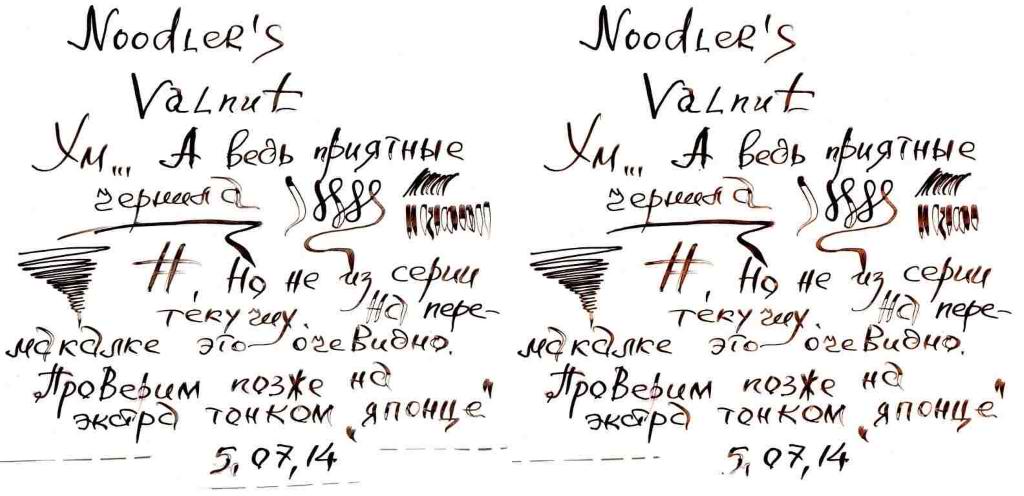 Noodler's
Valnut
Ум... А ведь приятные
чернила
#, Но не из серии
текучих. На пере-
макалке это очевидно.
Проверим позже на
экстра тонком „японце"
5,07,14
Noodler's
Valnut
Ум... А ведь приятные
чернила
#, Но не из серии
текучих. На пере-
макалке это очевидно.
Проверим позже на
экстра тонком „японце"
5,07,14